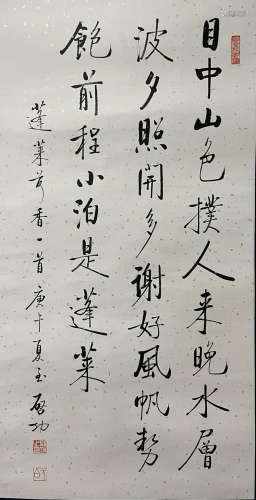 目中山色撲人来晚水層
波夕照開多謝好風帆勢
飽前程小泊是蓬莱
蓬莱
香一首庚午夏至啓功